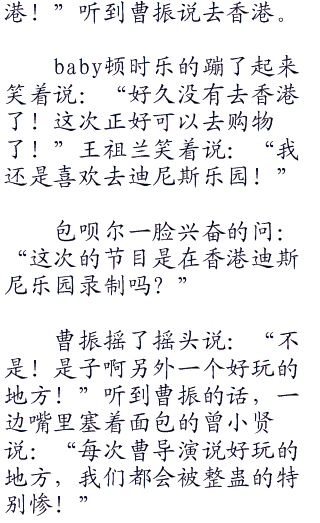 港！”听到曹振说去香港。
baby顿时乐的蹦了起来
笑着说：“好久没有去香港
了！这次正好可以去购物
了！”王祖兰笑着说：“我
还是喜欢去迪尼斯乐园！”
包呗尔一脸兴奋的问：
“这次的节目是在香港迪斯
尼乐园录制吗？”
曹振摇了摇头说：“不
是！是子啊另外一个好玩的
地方！”听到曹振的话，一
边嘴里塞着面包的曾小贤
说：“每次曹导演说好玩的
地方，我们都会被整蛊的特
别惨！”